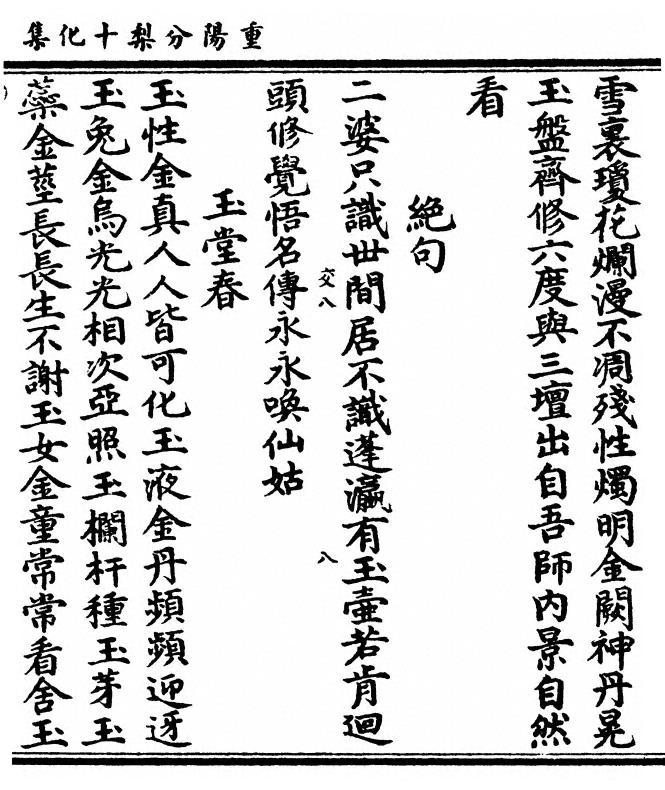 重陽分梨十化集
雪裏瓊花爛漫不凋殘性燭明金闕神丹晃
玉盤齊修六度與三壇出自吾師內景自然
看
絕句
二婆只識世間居不識蓬瀛有玉壺若肯迴
頭修覺悟名傳永永喚仙姑
交八
八
玉堂春
玉性金真人人皆可化玉液金丹頻頻迎迓
玉兔金烏光光相次亞照玉欄杆種玉芽玉
蘂金莖長長生不謝玉女金童常常看舍玉